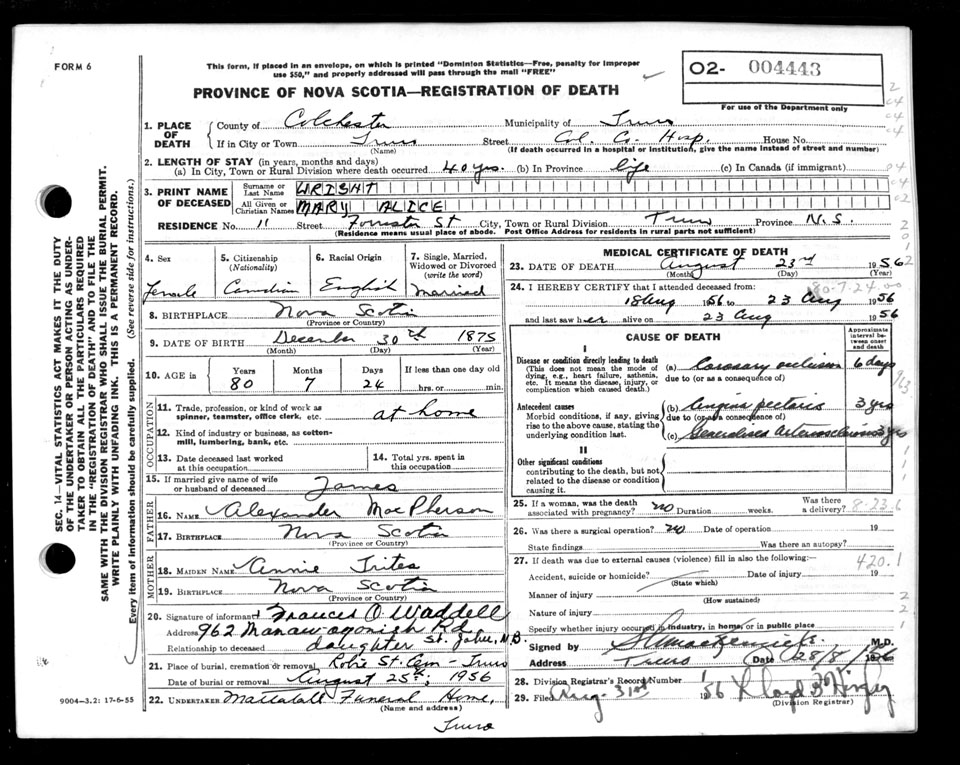 FORM 6
This form, if placed in an envelope, on which is printed "Dominion Statistics—Free, penalty for improper
use $50," and properly addressed will pass through the mail "FREE"
O2- 004443
For use of the Department only
PROVINCE OF NOVA SCOTIA—REGISTRATION OF DEATH
1. PLACE OF DEATH County of Colchester Municipality of Truro
If in City or Town Truro Street Col. Co. Hosp. House No.
(Name) (If death occurred in a hospital or institution, give the name instead of street and number)
2. LENGTH OF STAY (in years, months and days)
(a) In City, Town or Rural Division where death occurred 40 yrs. (b) In Province life (c) In Canada (if immigrant)
3. PRINT NAME OF DECEASED Surname or Last Name WRIGHT
All Given or Christian Names MARY ALICE
RESIDENCE No. 11 Street Forrester St City, Town or Rural Division Truro Province N.S.
(Residence means usual place of abode. Post Office Address for residents in rural parts not sufficient)
4. Sex 5. Citizenship (Nationality) 6. Racial Origin 7. Single, Married, Widowed or Divorced (write the word)
Female Canadian English Married
8. BIRTHPLACE Nova Scotia
(Province or Country)
9. DATE OF BIRTH December 30th 1875
(Month) (Day) (Year)
10. AGE in Years Months Days If less than one day old
80 7 24 hrs. or min.
OCCUPATION
11. Trade, profession, or kind of work as spinner, teamster, office clerk, etc. at home
12. Kind of industry or business, as cotton-mill, lumbering, bank, etc.
13. Date deceased last worked at this occupation
14. Total yrs. spent in this occupation
15. If married give name of wife or husband of deceased James
FATHER
16. NAME Alexander MacPherson
17. BIRTHPLACE Nova Scotia
(Province or Country)
MOTHER
18. MAIDEN NAME Annie Trites
19. BIRTHPLACE Nova Scotia
(Province or Country)
20. Signature of informant Frances O. Waddell
Address 962 Manawagonish Rd. St. John, N.B.
Relationship to deceased daughter
21. Place of burial, cremation or removal Robie St. Cem - Truro
Date of burial or removal August 25th, 1956
22. UNDERTAKER Mattatall Funeral Home,
(Name and address)
Truro
MEDICAL CERTIFICATE OF DEATH
23. DATE OF DEATH August 23rd 1956
(Month) (Day) (Year)
24. I HEREBY CERTIFY that I attended deceased from:
18 Aug 1956 to 23 Aug 1956
and last saw her alive on 23 Aug 1956
CAUSE OF DEATH
Approximate interval between onset and death
I
Disease or condition directly leading to death (a) Coronary occlusion 6 days
(This does not mean the mode of dying, e.g., heart failure, asthenia, etc. It means the disease, injury, or complication which caused death.)
due to (or as a consequence of)
Antecedent causes (b) Angina pectoris 3 yrs
Morbid conditions, if any, giving rise to the above cause, stating the underlying condition last.
due to (or as a consequence of)
(c) Generalised Arteriosclerosis 3 yrs
II
Other significant conditions
contributing to the death, but not related to the disease or condition causing it.
25. If a woman, was the death associated with pregnancy? no Duration weeks. Was there a delivery?
8-23-6
26. Was there a surgical operation? no Date of operation 19
State findings Was there an autopsy?
27. If death was due to external causes (violence) fill in also the following:—
420.1
Accident, suicide or homicide? Date of injury 19
(State which)
Manner of injury
(How sustained)
Nature of injury
Specify whether injury occurred in industry, in home, or in public place
Signed by M.D.
Address Truro Date 28/8/1956
28. Division Registrar's Record Number
29. Filed Aug-31st 1956
(Division Registrar)
SEC. 14—VITAL STATISTICS ACT MAKES IT THE DUTY
OF THE UNDERTAKER OR PERSON ACTING AS UNDER-
TAKER TO OBTAIN ALL THE PARTICULARS REQUIRED
IN THE "REGISTRATION OF DEATH" AND TO FILE THE
SAME WITH THE DIVISION REGISTRAR WHO SHALL ISSUE THE BURIAL PERMIT.
WRITE PLAINLY WITH UNFADING INK. THIS IS A PERMANENT RECORD.
Every item of Information should be carefully supplied. (See reverse side for instructions.)
9004—3.2: 17-6-55